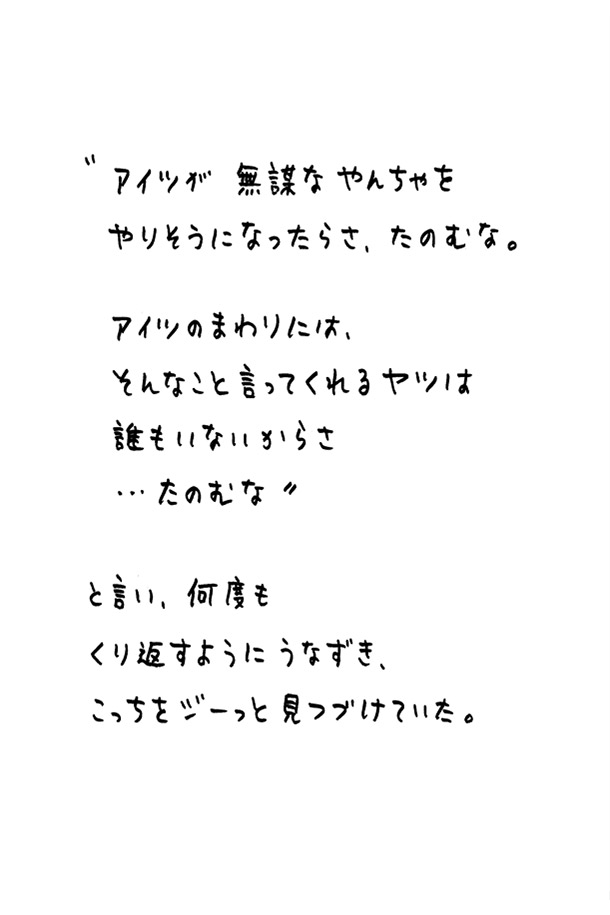 〝アイツが 無謀な やんちゃを
やりそうになったらさ、たのむな。
アイツのまわりには、
そんなこと言ってくれるヤツは
誰もいないからさ
…たのむな〟
と言い、何度も
くり返すように うなずき、
こっちをジーっと見つづけていた。